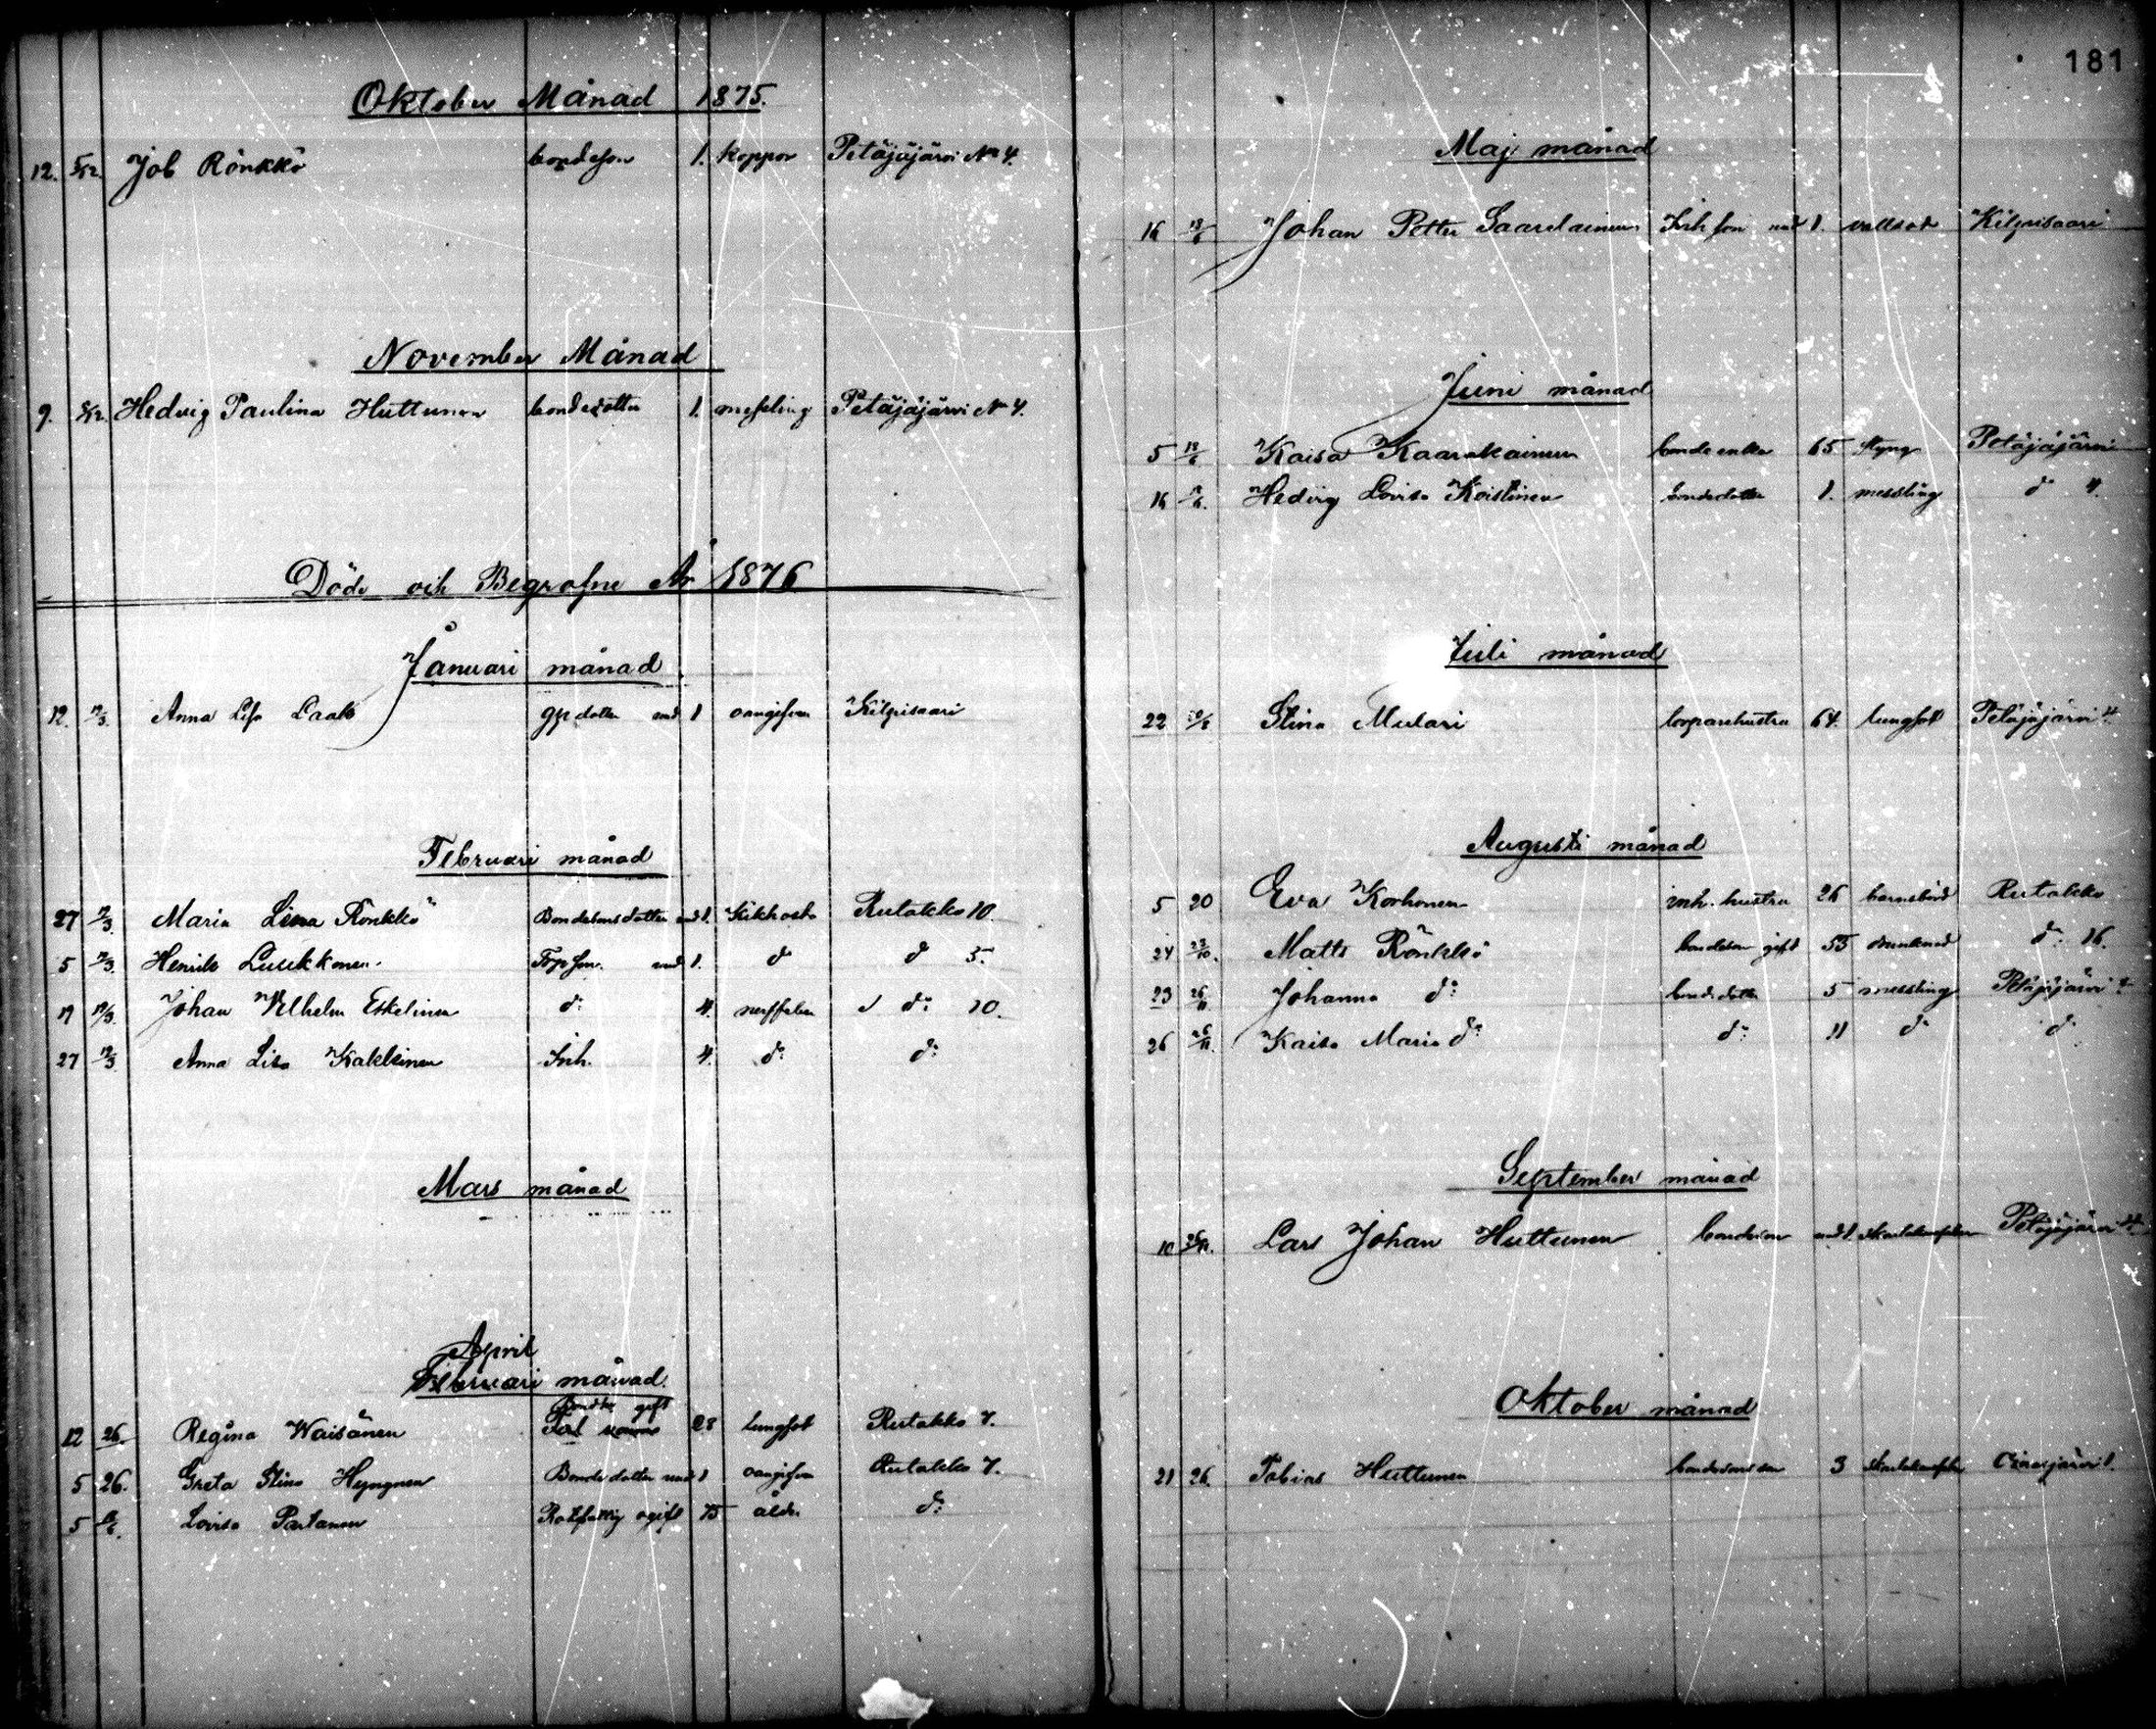 Oktober Månad 1875.
12. 5/12. Job Rönkkö bondeson 1. koppor Petäjäjärvi No 4.
November Månad
9. 5/12. Hedvig Paulina Huttunen bondedotter 1. messling Petäjäjärvi No 4.
Döde och Begrafne År 1876
Januari månad
12. 12/3. Anna Lisa Laak dotter und 1 oangifven Kilpisaari
Februari månad
27 12/3 Maria Lina Rönkkö Bondesons dotter und 1. Kikhosta Rutakko 10.
5 12/3. Henrik Liukkonen. Torp son. und 1. d: d: 5.
19 12/3. Johan Vilhelm Eskelinen d: 4. nerffeber d: 10.
27 12/3 Anna Lisa Kakkinen Inh. 4. d: d:
Mars månad
April
Februari månad.
Bonde gift
12 26. Regina Waisänen 28 lungsot Rutakko 7.
5 26. Greta Stina Hyngnen Bonde dotter und 1 oangifven Rutakko 7.
5 Lovisa Partanen Rotfattig ogift 75 ålder d:
181
Maj månad
16 18/6 Johan Petter Saarelainen Inh son und 1. vattsot Kilpisaari
Juni månad
5 18/6 Kaisa Kaarakainen bonde enka 65 styng Petäjäjärvi
16 Hedvig Lovisa Koistinen bondedotter 1. messling d: 4.
Juli månad
22 Stina Mulari torparehustru 64. lungsot Petäjäjärvi 4
Augusti månad
5 20 Eva Korhonen inh. hustru 26 barnsbörd Rutakko
24 22/10. Matts Rönkkö bondeson gift 55 drunknad d: 16.
23 26/11 Johanna d: bondedotter 5 messling Petäjäjärvi 4
26 26/11. Kaisa Maria d: d: 11 d: d:
September månad
10 26/11. Lars Johan Huttunen bondeson und 1. skarlakansfeber Petäjäjärvi 4
Oktober månad
21 26. Tobias Huttunen bondesons son 3 skarlakansfeber